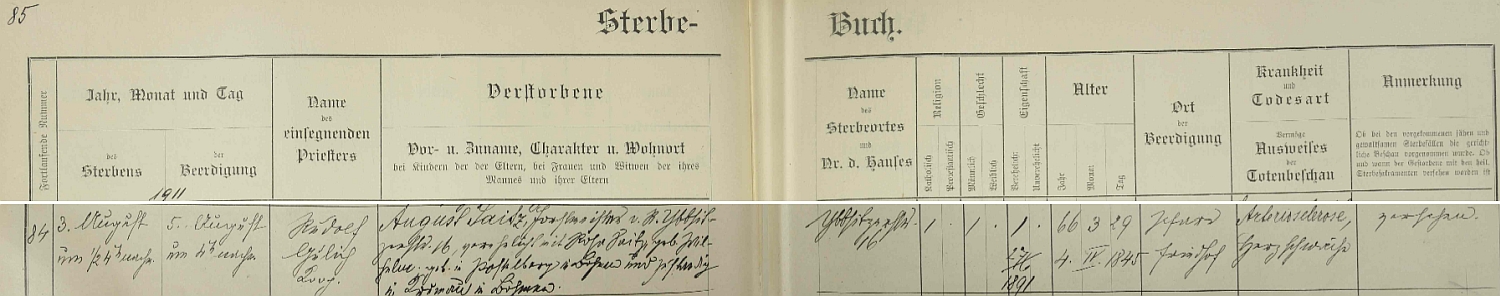 85
Sterbe-
Buch.
Fortlaufende Nummer
Jahr, Monat und Tag
des
Sterbens
der
Beerdigung
Name
des
einsegnenden
Priesters
Verstorbene
Vor- u. Zuname, Charakter u. Wohnort
bei Kindern der der Eltern, bei Frauen und Witwen der ihres
Mannes und ihrer Eltern
Name
des
Sterbeortes
und
Nr. d. Hauses
Religion
Katholisch
Protestantisch
Geschlecht
Männlich
Weiblich
Eigenschaft
Verehelicht
Unverehelicht
Alter
Jahr
Monat
Tag
Ort
der
Beerdigung
Krankheit
und
Todesart
Vermöge
Ausweises
der
Totenbeschau
Anmerkung
Ob bei den vorgekommenen jähen und
gewaltsamen Sterbefällen die gericht-
liche Beschau vorgenommen wurde. Ob
und wann der Gestorbene mit den heil.
Sterbesakramenten versehen worden ist
1911
84
3. August
um 1/2 4h nachm.
5. August
um 4h nachm.
Rudolf
Koop.
August Saitz, Forstmeister
verehelicht mit Rosa Saitz geb. Wil-
helm. geb. in Postelberg in Böhmen und zuständig
in Krumau in Böhmen.
16.
1. 1. 1.
1891
66 3 29
4. IV. 1845
Pfarr
friedhof
Arteriosclerose,
Herzschwäche
versehen.